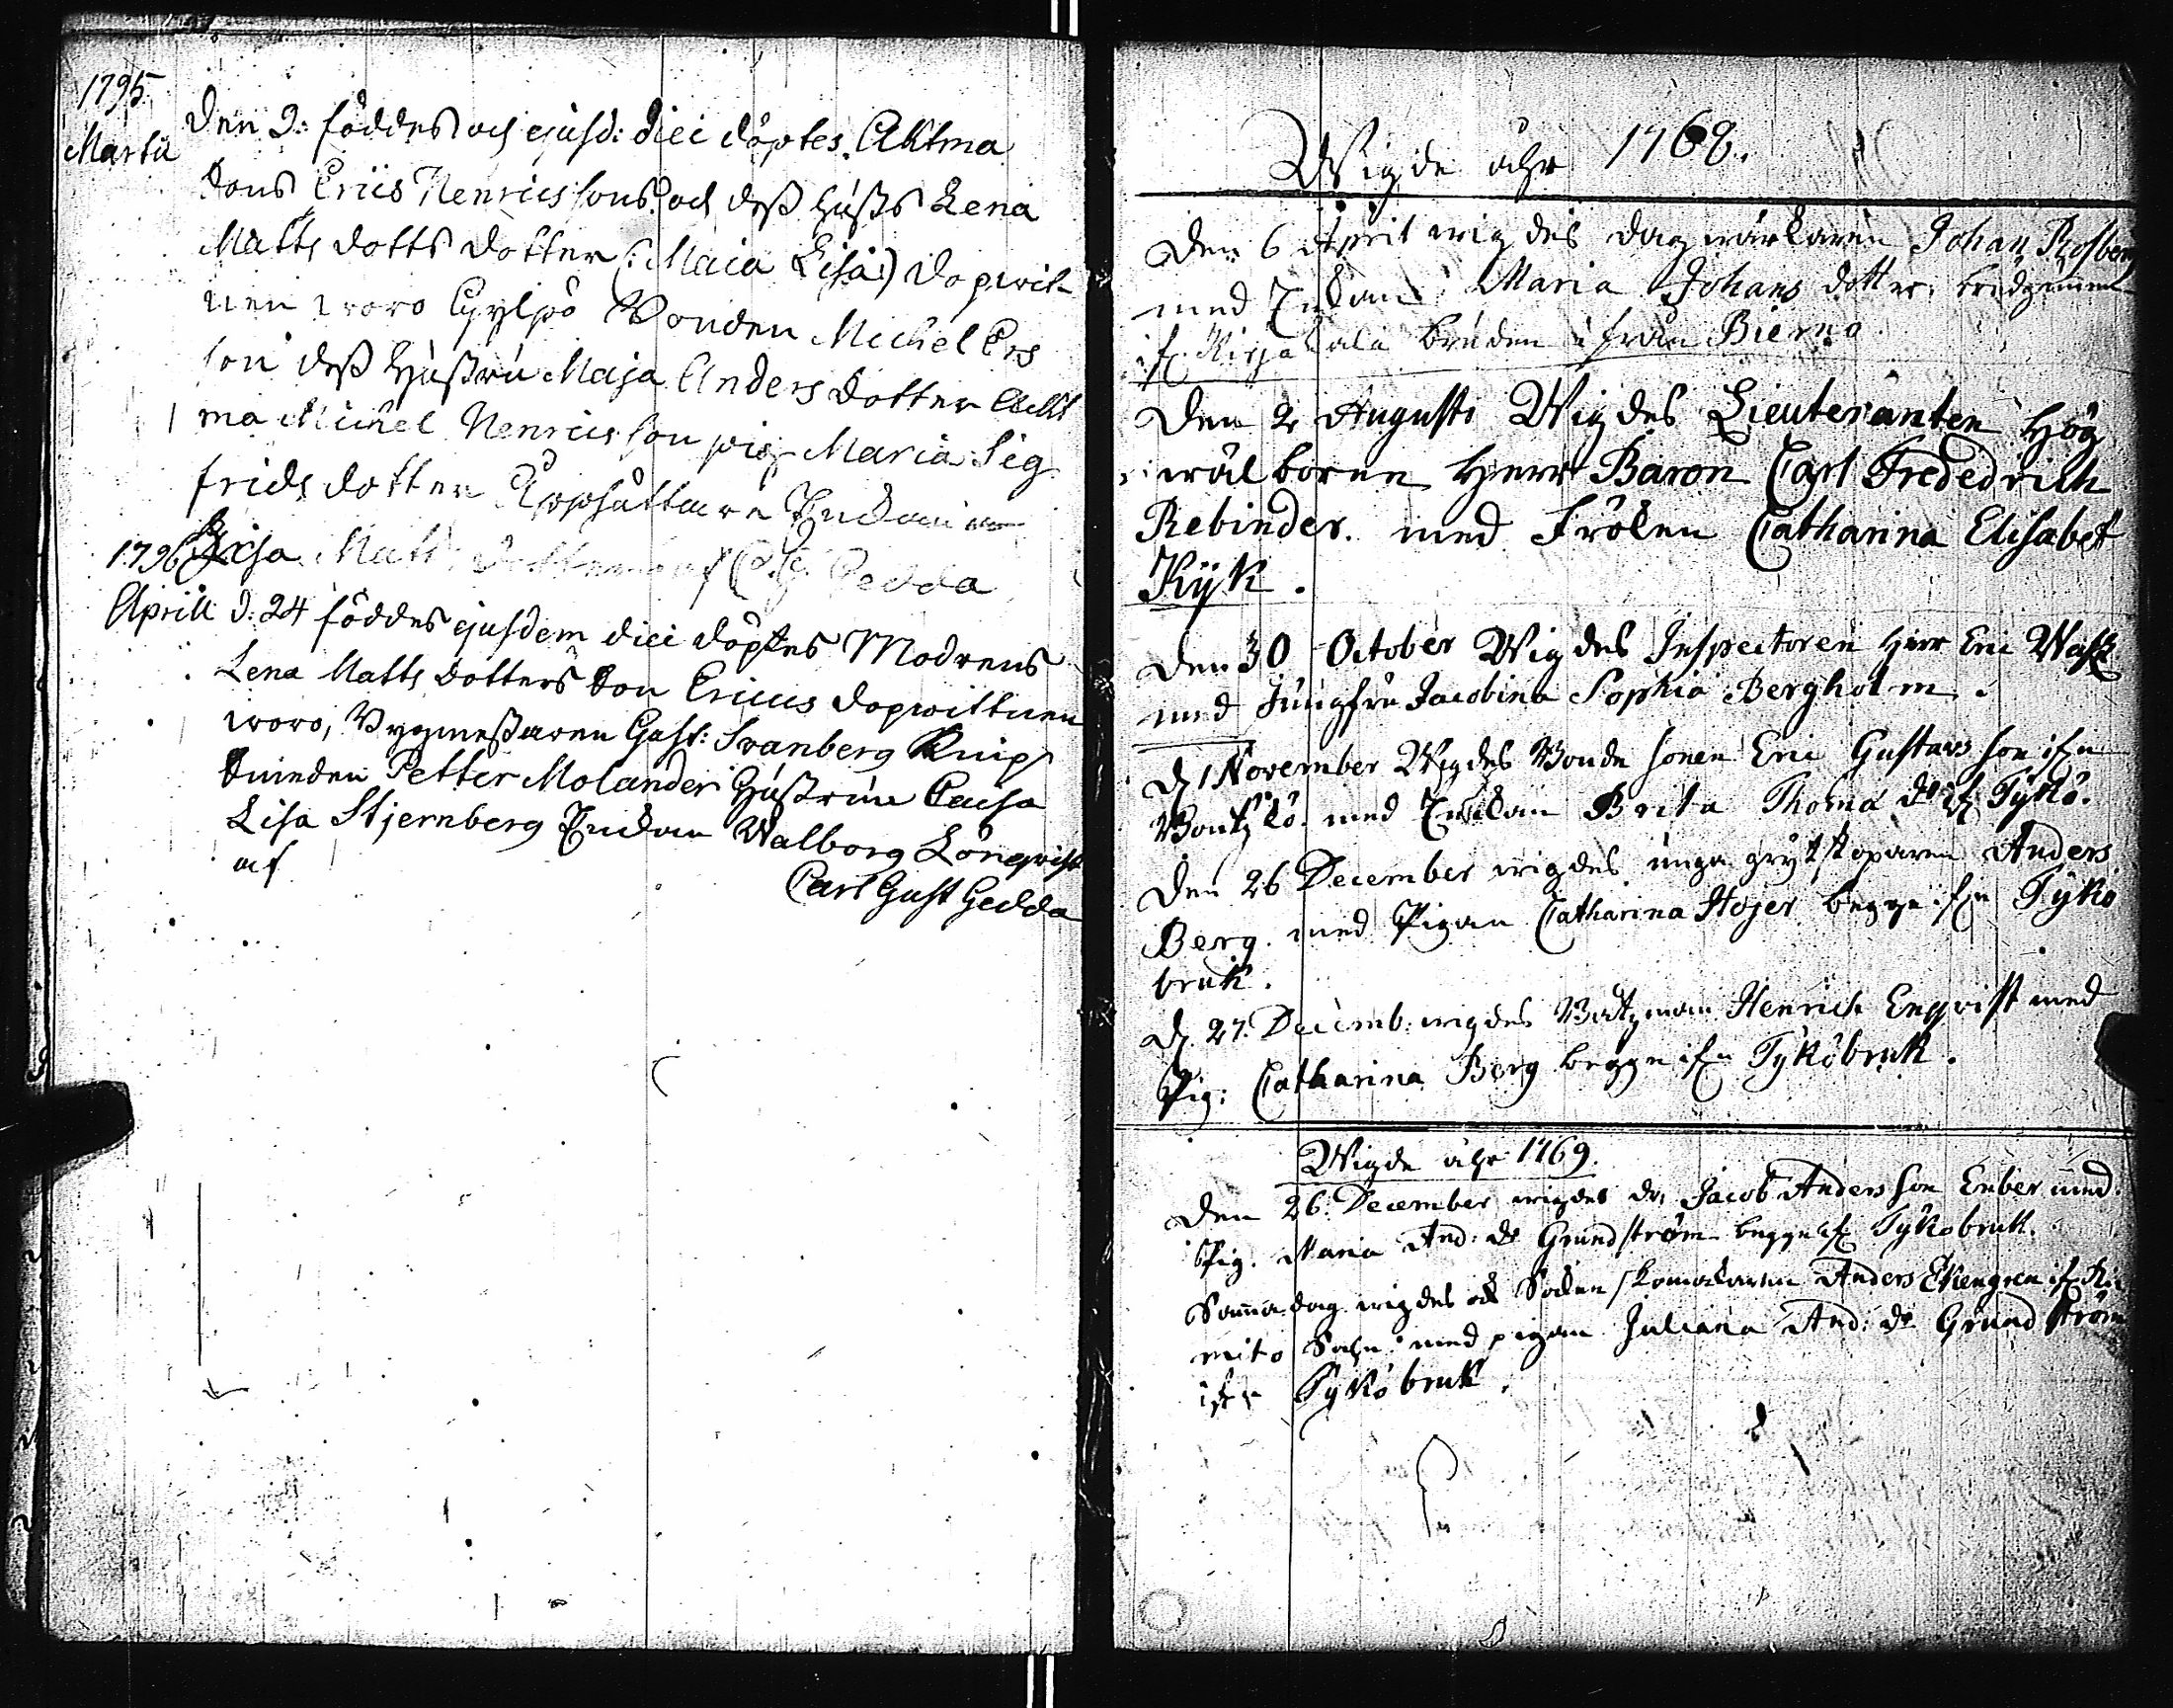 1795
Martii
Den 2: föddes och ejusd: diei döptes. Aktma
Sons Erics Henricssons och deß Hust: Lena
Matts dotts dotter (: Maia Lisa:) dopwit
nen woro Gylpö Bonden Michel Ers
son deß Hustru Maja Anders dotter Akt
ma Michel Henricsson pig. Maria Sig
frids dotter Uppsättare Enckan
1796 Lisa Matts dotter af C. G. Gedda
Aprill d: 24 föddes ejusdem diei döptes Modrens
Lena Matts dotters Son Ericus dopwittnen
woro, Bygmestaren Gust: Svanberg Knip
Smeden Petter Molander Hustrun Caisa
Lisa Stjernberg Enckan Walborg Lönqwist
af
Carl Gust Gedda
Wigde åhr 1768.
Den 6 April wigdes dagwärkaren Johan Rosberg
med Enkan Maria Johans dotter, brudgummen
if. Kirjakala bruden ifrån Bierno
Den 2 Augusti Wigdes Lieutenanten Hög
wälborne Herr Baron Carl Frededrich
Rebinder. med Fröken Catharina Elisabet
Kÿk.
Den 30 October Wigdes Inspectoren Herr Eric Wask
med Jungfru Jacobina Sophia Bergholm.
D 1 November Wigdes Bonde sonen Eric Gustavs son ifrn
med Enkan Brita Thoma dr if Tykö.
Den 26 December wigdes unga grytstöparen Anders
Berg. med Pigan Catharina Höjer begge ifrn Tykö
bruk.
D. 27. Decemb: wigdes Båtzman Henrich Enqvist med
Pig: Catharina Berg begge ifrn Tyköbruk.
Wigde åhr 1769.
Den 26. December wigdes dr. Jacob Anders son Enber med
Pig. Maria And: dr Grundström begge if Tykobruk.
Samma dag wigdes ock Sockenskomakaren Anders Ekengren if Ri
mito Sokn: med pigan Juliana And: dr Grundström
ifrn Tykö bruk.